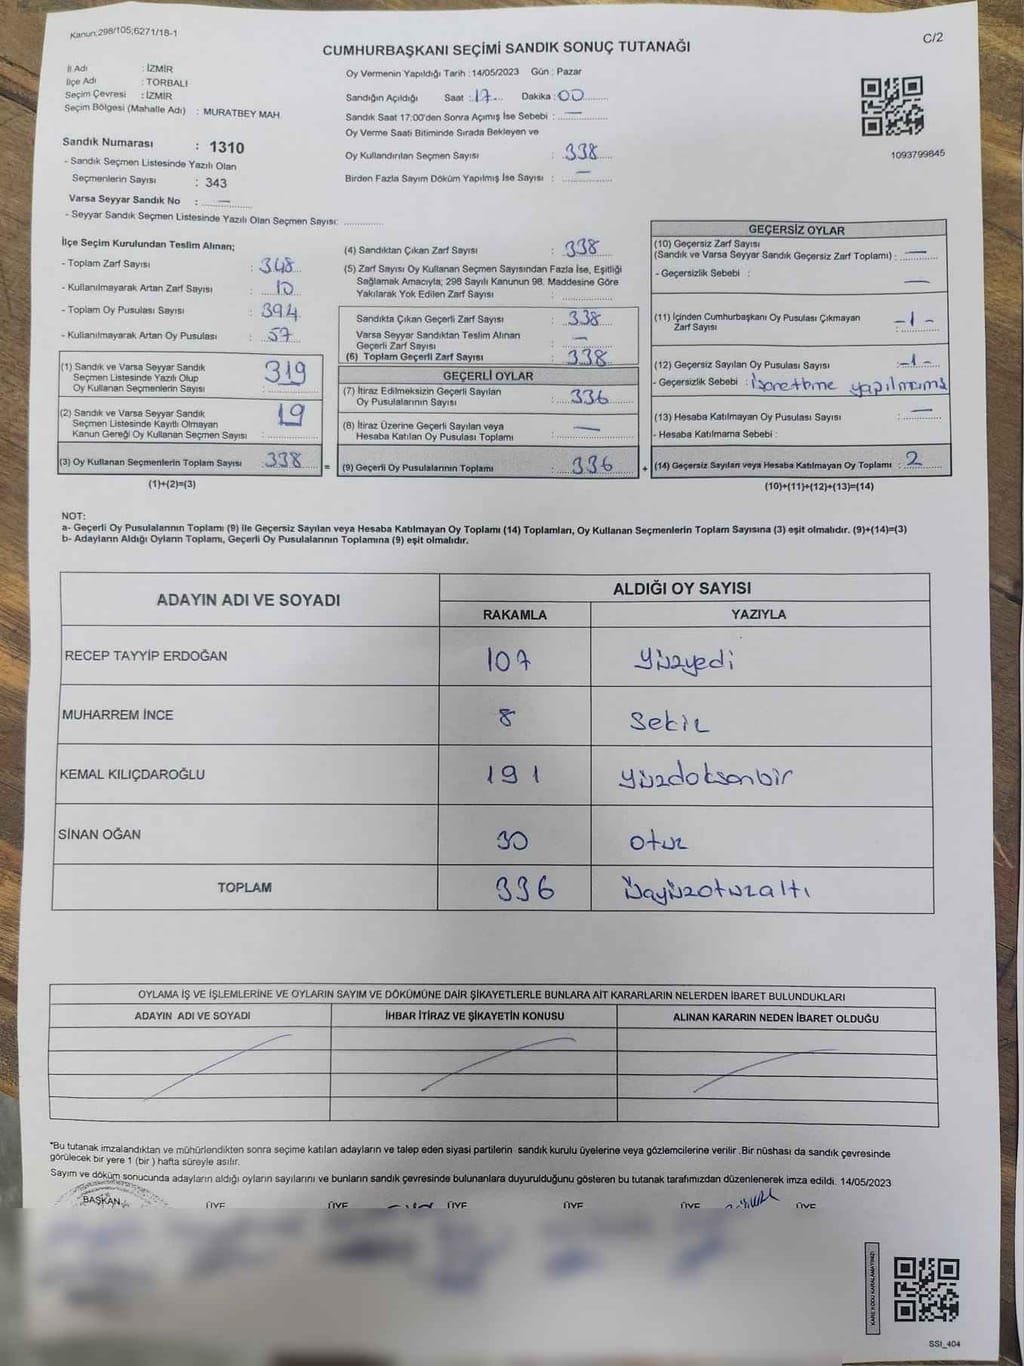 Kanun,298/105;6271/18-1
C/2
CUMHURBAŞKANI SEÇİMİ SANDIK SONUÇ TUTANAĞI
İl Adı : İZMİR
İlçe Adı : TORBALI
Seçim Çevresi : İZMİR
Seçim Bölgesi (Mahalle Adı) : MURATBEY MAH.
Sandık Numarası : 1310
- Sandık Seçmen Listesinde Yazılı Olan
Seçmenlerin Sayısı : 343
Varsa Seyyar Sandık No : —
- Seyyar Sandık Seçmen Listesinde Yazılı Olan Seçmen Sayısı: ............
Oy Vermenin Yapıldığı Tarih :14/05/2023 Gün : Pazar
Sandığın Açıldığı Saat :17... Dakika :00
Sandık Saat 17:00'den Sonra Açımış İse Sebebi : —
Oy Verme Saati Bitiminde Sırada Bekleyen ve
Oy Kullandırılan Seçmen Sayısı : 338
Birden Fazla Sayım Döküm Yapılmış İse Sayısı : —
1093799845
İlçe Seçim Kurulundan Teslim Alınan;
- Toplam Zarf Sayısı : 348
- Kullanılmayarak Artan Zarf Sayısı : 10
- Toplam Oy Pusulası Sayısı : 394
- Kullanılmayarak Artan Oy Pusulası : 57
(1) Sandık ve Varsa Seyyar Sandık
Seçmen Listesinde Yazılı Olup
Oy Kullanan Seçmenlerin Sayısı : 319
(2) Sandık ve Varsa Seyyar Sandık
Seçmen Listesinde Kayıtlı Olmayan
Kanun Gereği Oy Kullanan Seçmen Sayısı : 19
(3) Oy Kullanan Seçmenlerin Toplam Sayısı : 338
(1)+(2)=(3)
(4) Sandıktan Çıkan Zarf Sayısı : 338
(5) Zarf Sayısı Oy Kullanan Seçmen Sayısından Fazla İse, Eşitliği
Sağlamak Amacıyla; 298 Sayılı Kanunun 98. Maddesine Göre
Yakılarak Yok Edilen Zarf Sayısı : ............
Sandıkta Çıkan Geçerli Zarf Sayısı : 338
Varsa Seyyar Sandıktan Teslim Alınan
Geçerli Zarf Sayısı : —
(6) Toplam Geçerli Zarf Sayısı : 338
GEÇERLİ OYLAR
(7) İtiraz Edilmeksizin Geçerli Sayılan
Oy Pusulalarının Sayısı : 336
(8) İtiraz Üzerine Geçerli Sayılan veya
Hesaba Katılan Oy Pusulası Toplamı : —
= (9) Geçerli Oy Pusulalarının Toplamı : 336
GEÇERSİZ OYLAR
(10) Geçersiz Zarf Sayısı
(Sandık ve Varsa Seyyar Sandık Geçersiz Zarf Toplamı) : —
- Geçersizlik Sebebi : —
(11) İçinden Cumhurbaşkanı Oy Pusulası Çıkmayan
Zarf Sayısı : -1-
(12) Geçersiz Sayılan Oy Pusulası Sayısı : -1-
- Geçersizlik Sebebi : İşaretleme yapılmamış
(13) Hesaba Katılmayan Oy Pusulası Sayısı : —
- Hesaba Katılmama Sebebi :
+ (14) Geçersiz Sayılan veya Hesaba Katılmayan Oy Toplamı : 2
(10)+(11)+(12)+(13)=(14)
NOT:
a- Geçerli Oy Pusulalarının Toplamı (9) ile Geçersiz Sayılan veya Hesaba Katılmayan Oy Toplamı (14) Toplamları, Oy Kullanan Seçmenlerin Toplam Sayısına (3) eşit olmalıdır. (9)+(14)=(3)
b- Adayların Aldığı Oyların Toplamı, Geçerli Oy Pusulalarının Toplamına (9) eşit olmalıdır.
ADAYIN ADI VE SOYADI ALDIĞI OY SAYISI
RAKAMLA YAZIYLA
RECEP TAYYİP ERDOĞAN 107 Yüzyedi
MUHARREM İNCE 8 Sekiz
KEMAL KILIÇDAROĞLU 191 yüzdoksanbir
SİNAN OĞAN 30 otuz
TOPLAM 336 üçyüzotuzaltı
OYLAMA İŞ VE İŞLEMLERİNE VE OYLARIN SAYIM VE DÖKÜMÜNE DAİR ŞİKAYETLERLE BUNLARA AİT KARARLARIN NELERDEN İBARET BULUNDUKLARI
ADAYIN ADI VE SOYADI İHBAR İTİRAZ VE ŞİKAYETİN KONUSU ALINAN KARARIN NEDEN İBARET OLDUĞU
*Bu tutanak imzalandıktan ve mühürlendikten sonra seçime katılan adayların ve talep eden siyasi partilerin sandık kurulu üyelerine veya gözlemcilerine verilir .Bir nüshası da sandık çevresinde
görülecek bir yere 1 (bir ) hafta süreyle asılır.
Sayım ve döküm sonucunda adayların aldığı oyların sayılarını ve bunların sandık çevresinde bulunanlara duyurulduğunu gösteren bu tutanak tarafımızdan düzenlenerek imza edildi. 14/05/2023
BAŞKAN ÜYE ÜYE ÜYE ÜYE ÜYE ÜYE
KARE KODU KARALAMAYINIZ!
SSI_404